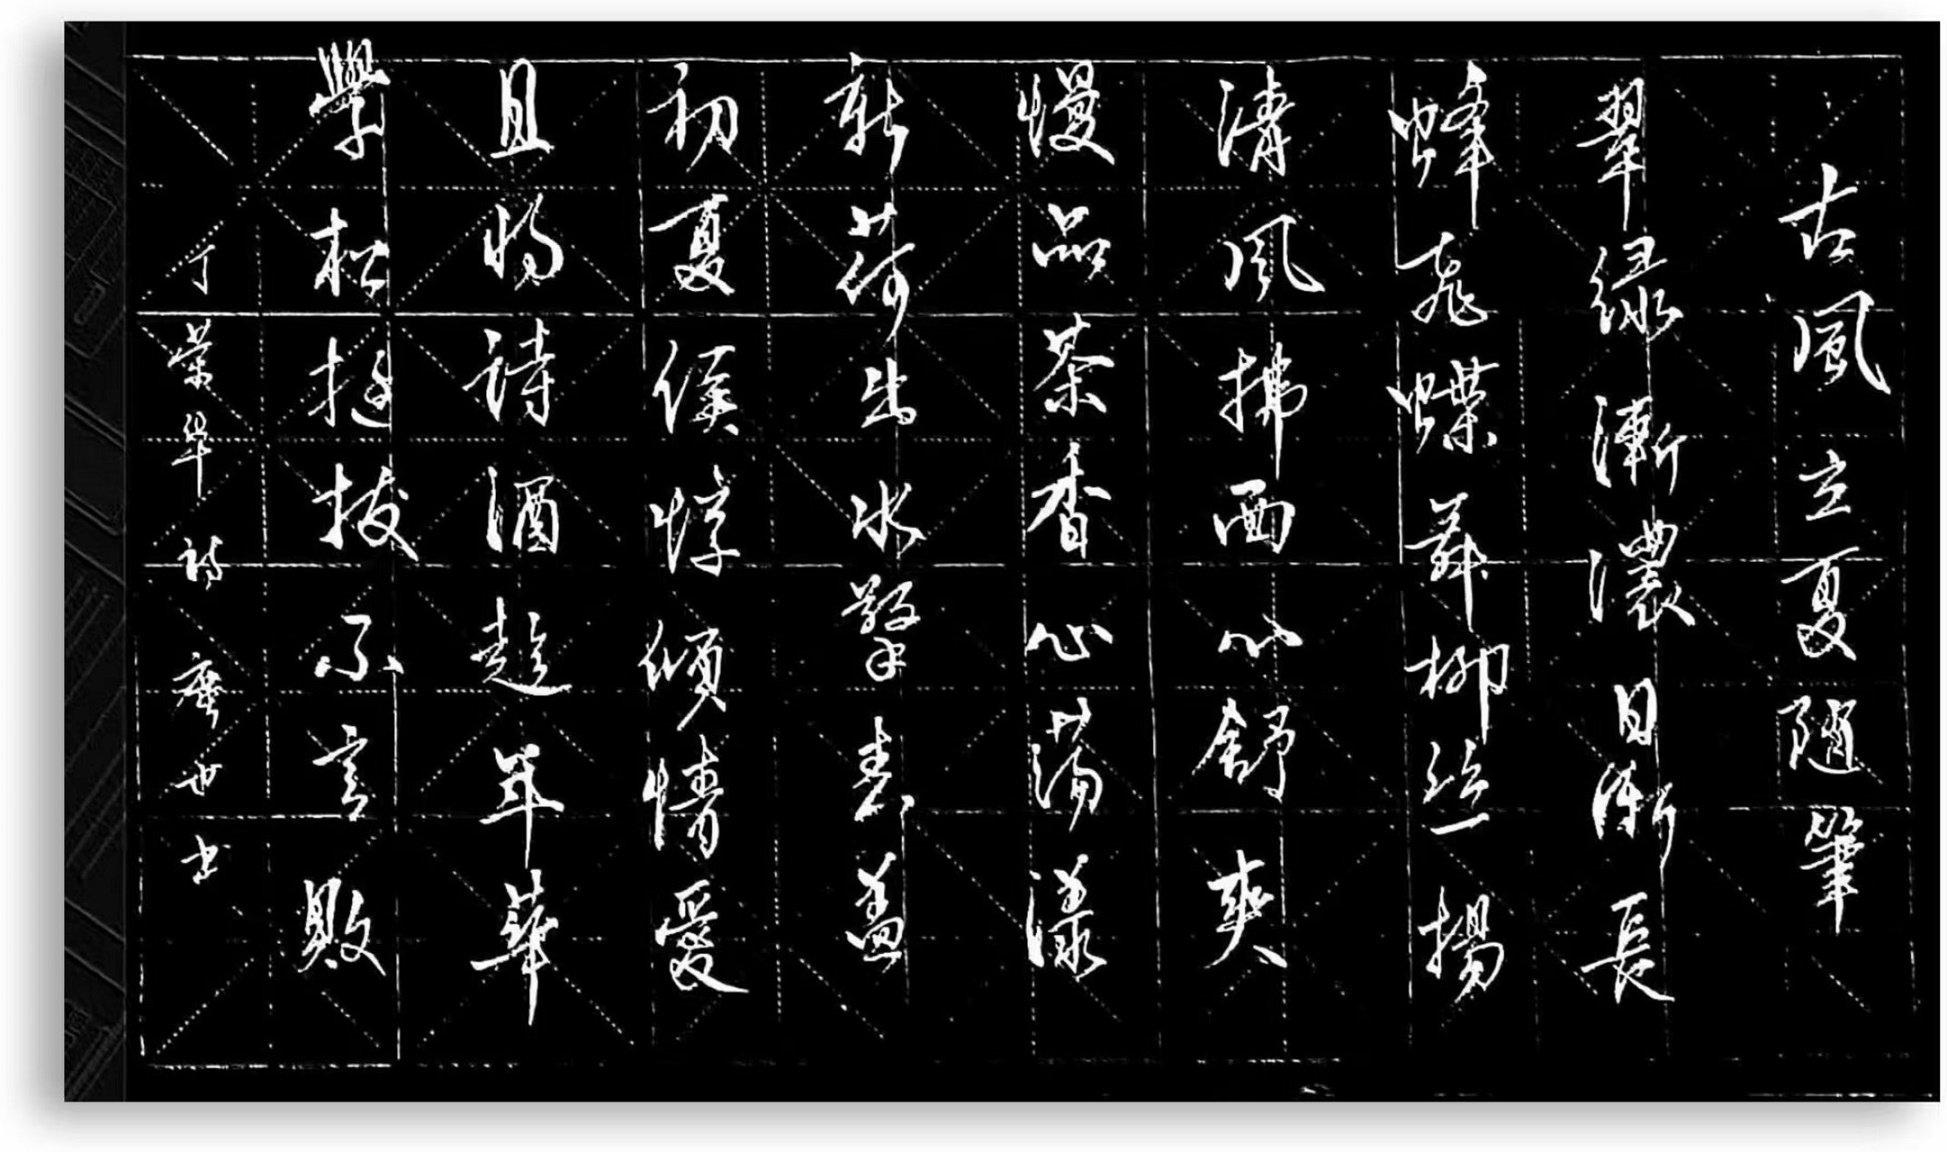 古風立夏随筆
翠绿漸濃日漸長
蜂飛蝶舞柳丝揚
清風拂面心舒爽
慢品茶香心蕩漾
新荷出水擎青蓋
初夏侯惇傾情愛
且将詩酒趁年華
學松挺拔不言敗
丁荣华詩 唐世书